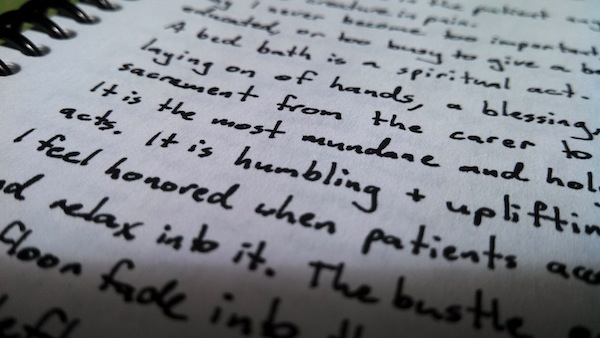 the patient
creature in pain.
I never become too important
educated, or too busy to give a
A bed bath is a spiritual act.
laying on of hands, a blessing,
sacrament from the carer to
It is the most mundane and
acts. It is humbling + upliftin
I feel honored when patients
relax into it. The bustle
floor fade into